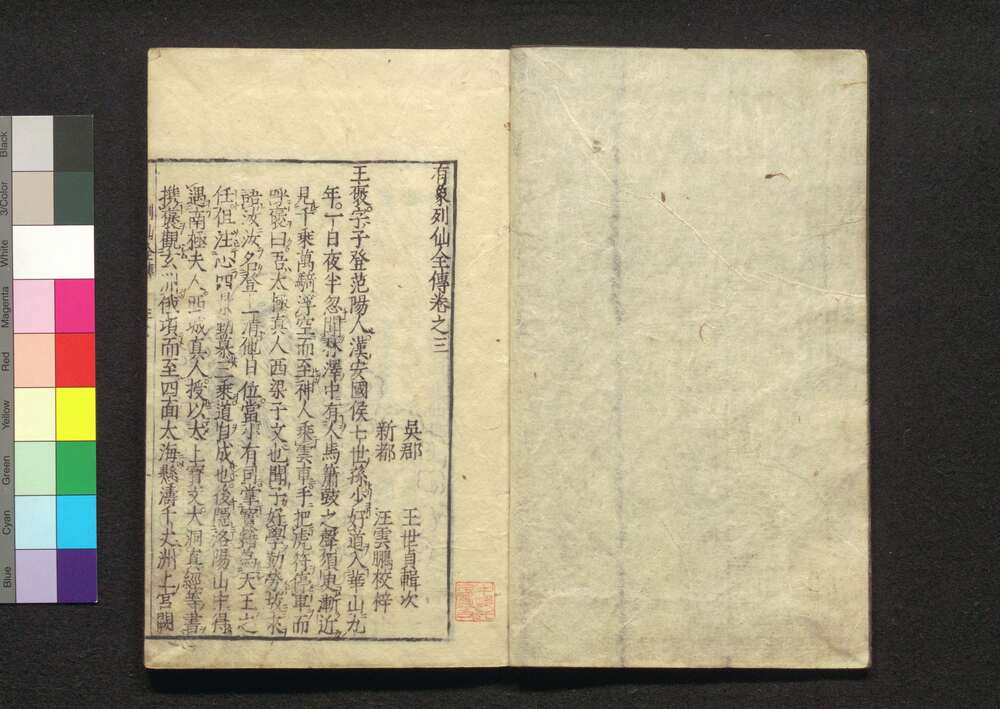 有象列仙全傳卷之三
吳郡 王世貞輯次
新都 汪雲鵬校梓
王褒字子登范陽人漢安國侯七世孫少好道入華山九
年一日夜半忽聞林澤中有人馬簫鼓之聲須臾漸近
見千乘萬騎浮空而至神人乘雲車手把虎符停車而
呼褒曰吾太極真人西梁子文也聞子好學勤勞故來
語汝汝名登上清他日位當小有司掌寶籍為天王之
任但注心四景勤慕三乘道自成也後隱洛陽山中得
遇南極夫人西城真人授以太上寶文大洞真經等書
攜褒觀玄洲俄頃而至四面大海懸濤千丈洲上宮闕
列仙全傳
Black
3/Color
White
Magenta
Red
Yellow
Green
Cyan
Blue